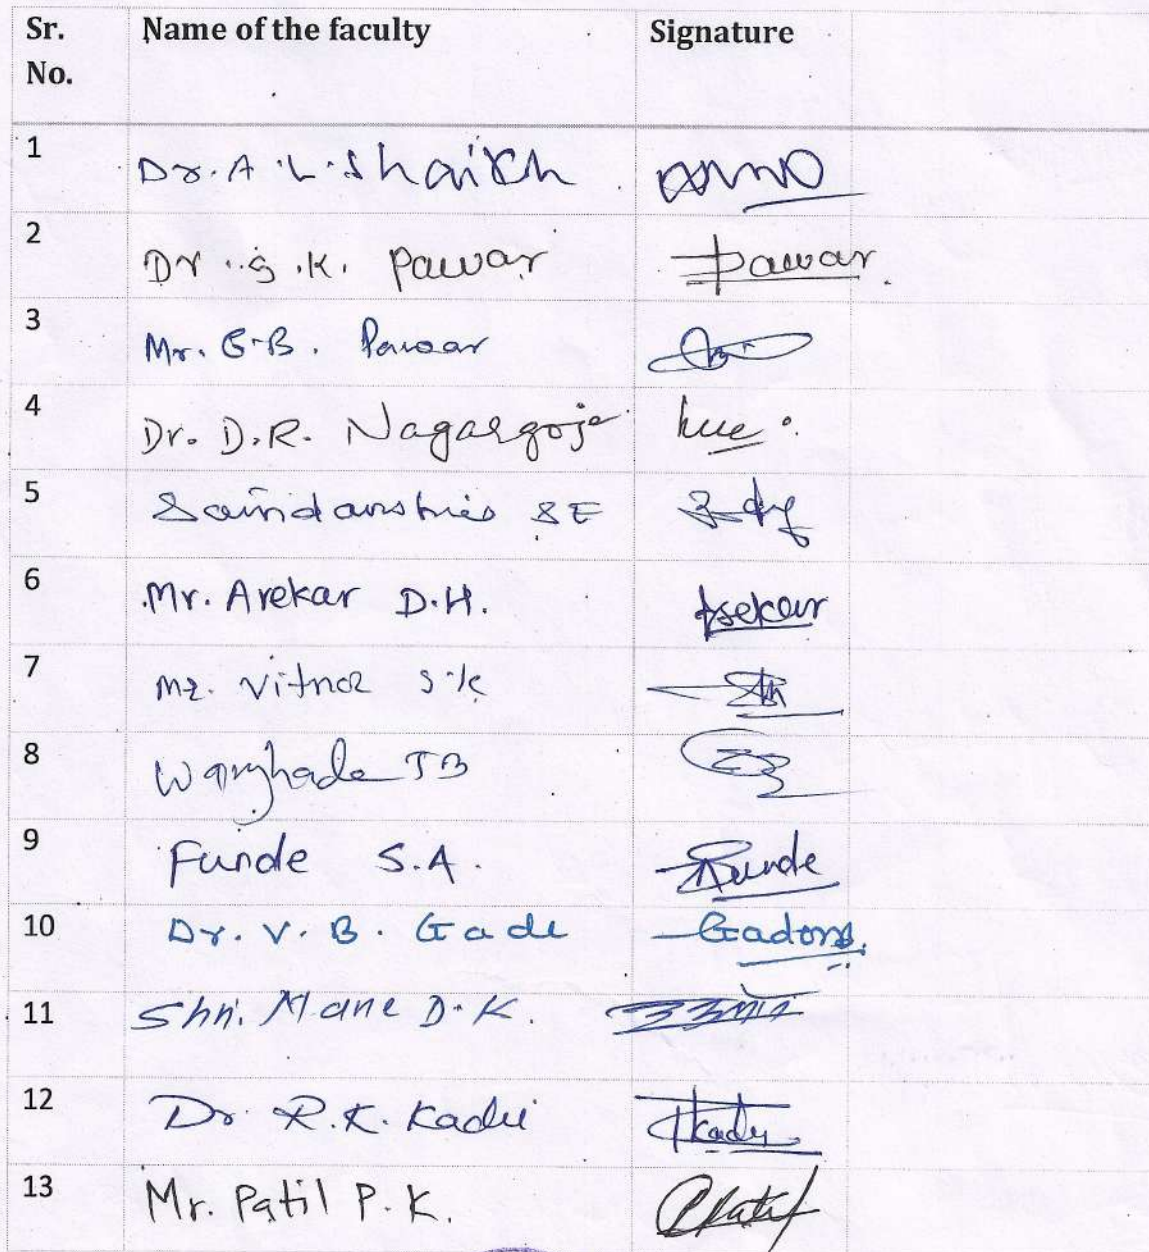 Sr. No. Name of the faculty Signature
1 Dr. A. L. Shaikh
2 Dr. S. K. Pawar Pawar
3 Mr. G. B. Pawar
4 Dr. D. R. Nagargoje
5 SE
6 Mr. Arekar D.H. Arekar
7 Mr. Vitnor S.K
8 Warghade TB
9 Funde S.A. Funde
10 Dr. V. B. Gade
11 Shri. Mane D.K.
12 Dr R.K. Kadu Kadu
13 Mr. Patil P.K. Patil